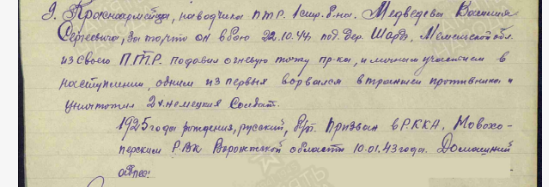 9. Красноармейца, наводчика ПТР. 1 стр. б-на. Медведева Василия
Сергеевича, за то, что он в бою 22.10.44 под дер. Мемельской обл.
из своего П.Т.Р. подавил огневую точку пр-ка, и личным участием в
наступлении, одним из первых ворвался в траншеи противника и
уничтожил 2х немецких солдат.
1925 года рождения, русский, б/п. Призван в РККА, Новохо-
перским РВК Воронежской области 10.01.43 года. Домашний
адрес: